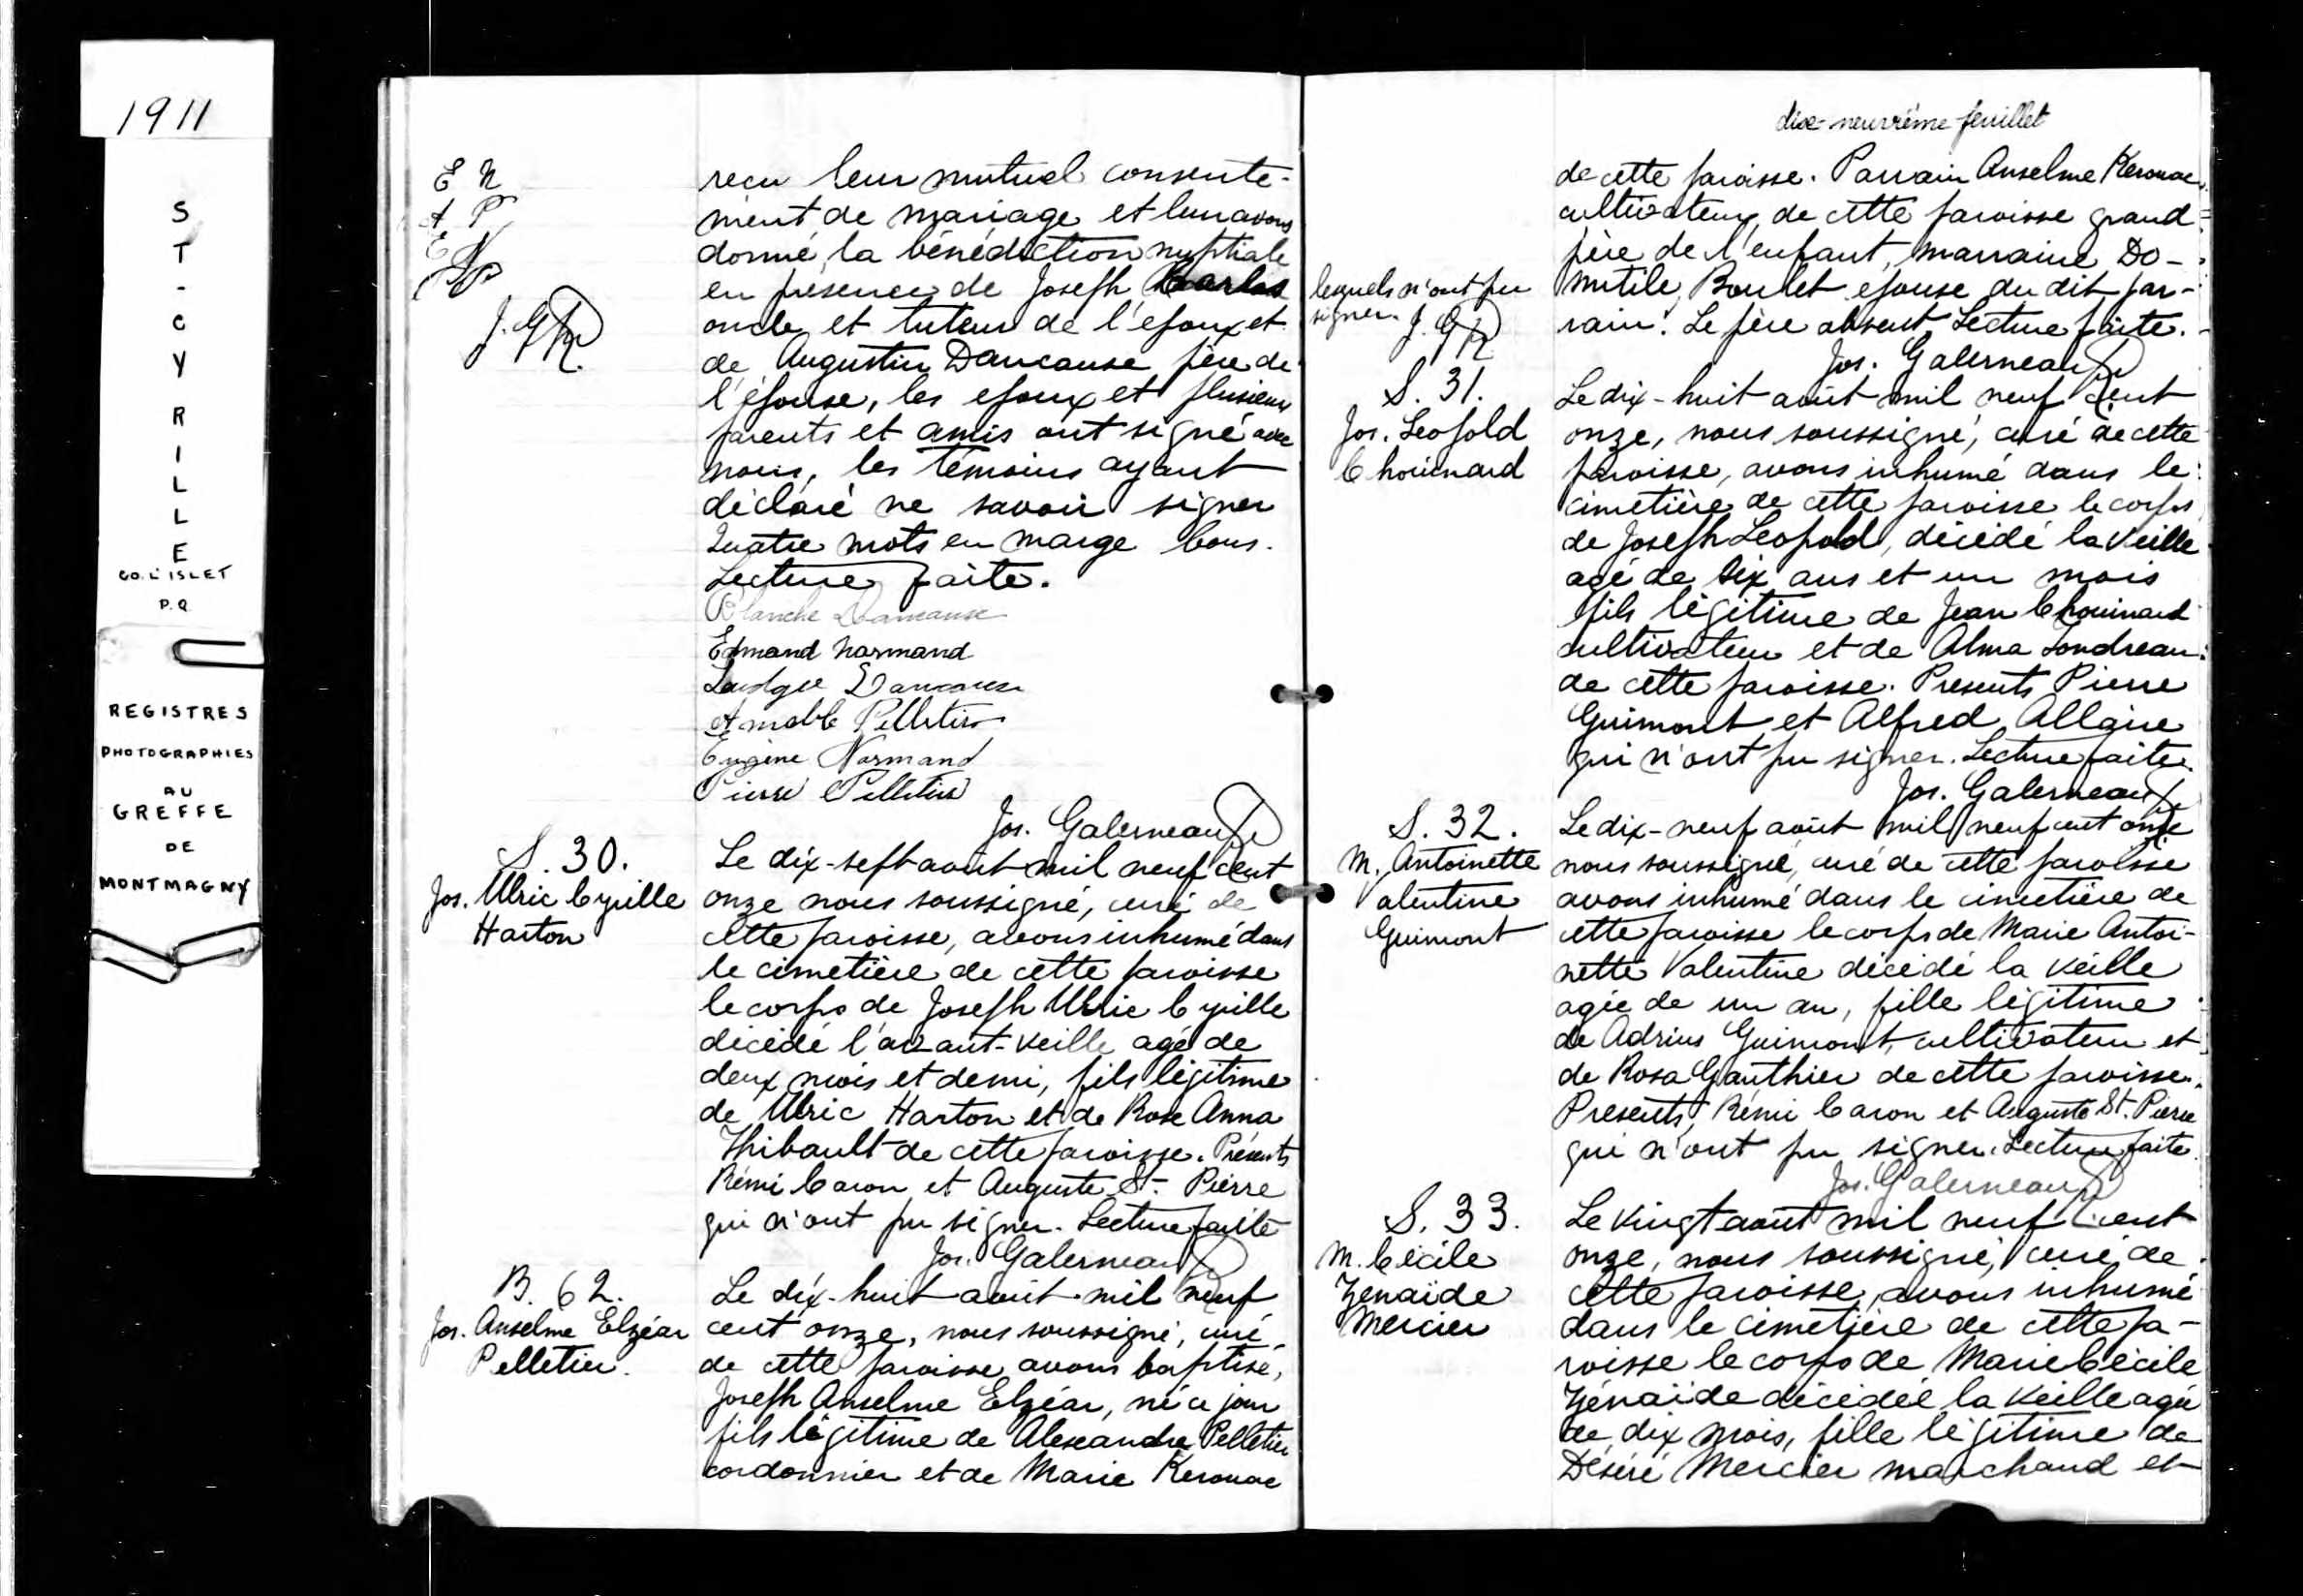 1911
S
T
-
C
Y
R
I
L
L
E
CO. L'ISLET
P.Q.
REGISTRES
PHOTOGRAPHIES
AU
GREFFE
DE
MONTMAGNY
E N
A P
E N
PP
J. G Ptre
recu leur mutuel consente-
ment de mariage et leur avons
donné la bénédiction nuptiale
en presence de Joseph
oncle et tuteur de l'epoux et
de Augustin Dancause père de
l'épouse, les epoux et plusieurs
parents et amis ont signé avec
nous, les témoins ayant
déclaré ne savoir signer
Quatre mots en marge bons.
Lecture faite.
Blanche Dancause
Edmand Normand
Ludger Dancause
Amable Pelletier
Eugène Normand
Pierre Pelletier
Jos. Galerneau Ptre
S. 30.
Jos. Ulric Cyrille
Harton
Le dix-sept août mil neuf cent
onze nous soussigné, curé de
cette paroisse, avons inhumé dans
le cimetière de cette paroisse
le corps de Joseph Ulric Cyrille
décédé l'avant-veille agé de
deux mois et demi, fils légitime
de Ulric Harton et de Rose Anna
Thibault de cette paroisse. Présents
Rémi Caron et Auguste St. Pierre
qui n'ont pu signer. Lecture faite
Jos. Galerneau Ptre
B. 62.
Jos. Anselme Elzéar
Pelletier.
Le dix-huit août mil neuf
cent onze, nous soussigné, curé
de cette paroisse avons baptisé,
Joseph Anselme Elzéar, né ce jour
fils légitime de Alexandre Pelletier
cordonnier et de Marie Kerouac
dix-neuvième feuillet
de cette paroisse. Parrain Anselme Kerouac,
cultivateur, de cette paroisse grand-
père de l'enfant, marraine Do-
mitile Boulet epouse du dit par-
rain. Le père absent. Lecture faite.
lesquels n'ont pu
signer. J. G Ptre
Jos. Galerneau Ptre
S. 31.
Jos. Leopold
Chouinard
Le dix-huit août mil neuf cent
onze, nous soussigné, curé de cette
paroisse, avons inhumé dans le
cimetière de cette paroisse le corps
de Joseph Leopold, décédé la veille
agé de six ans et un mois
fils légitime de Jean Chouinard
cultivateur et de Alma Londreau
de cette paroisse. Presents Pierre
Guimont et Alfred Allaire
qui n'ont pu signer. Lecture faite.
Jos. Galerneau Ptre
S. 32.
M. Antoinette
Valentine
Guimont
Le dix-neuf août mil neuf cent onze
nous soussigné, curé de cette paroisse
avons inhumé dans le cimetière de
cette paroisse le corps de Marie Antoi-
nette Valentine décédé la veille
agée de un an, fille légitime
de Adrius Guimont, cultivateur et
de Rosa Gauthier de cette paroisse.
Presents, Rémi Caron et Auguste St. Pierre
qui n'ont pu signer. Lecture faite
Jos. Galerneau Ptre
S. 33.
M. Cécile
Zénaïde
Mercier
Le vingt août mil neuf cent
onze, nous soussigné, curé de
cette paroisse, avons inhumé
dans le cimetière de cette pa-
roisse le corps de Marie Cécile
Zénaïde décédée la veille agée
de dix mois, fille légitime de
Désiré Mercier marchand et